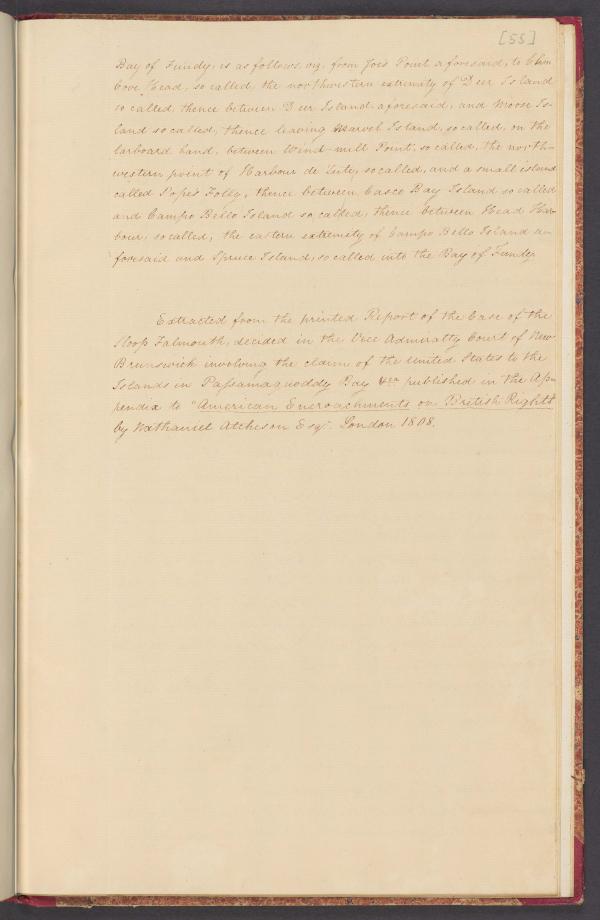 [55]
Bay of Fundy, is as follows, viz, from Joes Point aforesaid, to Clam
Cove Head, so called, the northwestern extremity of Deer Island
so called, thence between Deer Island aforesaid, and Moose Is-
land so called, thence leaving Marvel Island, so called, on the
larboard hand, between Wind-mill Point, so called, the north-
western point of Harbour de Lute, so called, and a small island
called Popes Folly, thence between Casco Bay Island so called
and Campo Bello Island so called, thence between Head Har-
bour, so called, the eastern extremity of Campo Bello Island a-
foresaid and Spruce Island, so called into the Bay of Fundy
Extracted from the printed Report of the Case of the
Sloop Falmouth, decided in the Vice Admiralty Court of New
Brunswick involving the claim of the United States to the
Islands in Passamaquoddy Bay &ca published in the Ap-
pendix to "American Encroachments on British Rights
by Nathaniel Atcheson Esqr. London 1808.